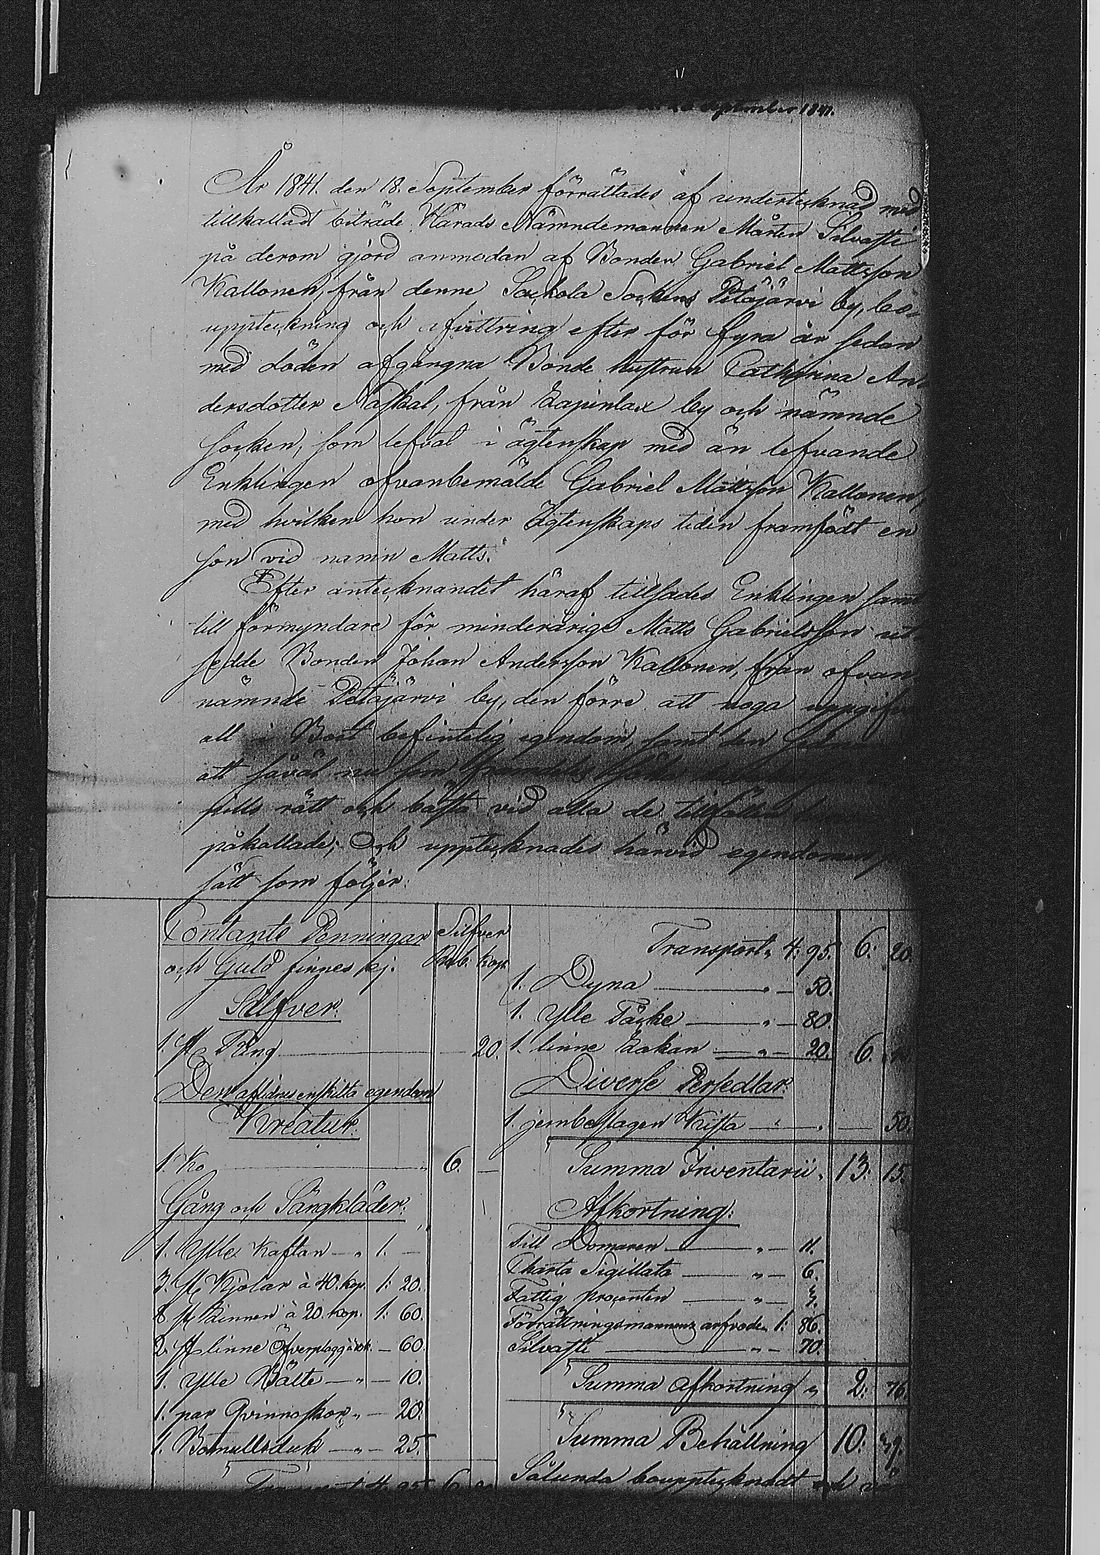 September 1841.
År 1841. den 18. September förrättades af undertecknad med
tillkalladt biträde Härads Nämndemannen Mårten Silvasti
på derom gjord anmodan af Bonden Gabriel Mattsson
Kallonen, från denne Sackola Sockens Petäjärvi by, bo-
uppteckning och efter för fyra år sedan
med döden afgångna Bonde hustrun Catharina An-
dersdotter Naskal, från by och nämnde
socken, som lefvat i ägtenskap med än lefvande
Enklingen ofvanbemälde Gabriel Mattsson Kallonen,
med hvilken hon under Ägtenskaps tiden framfödt en
son vid namn Matts.
Efter antecknandet häraf tillsades Enklingen samt
till förmyndare för minderårige Matts Gabrielsson ut-
sedde Bonden Johan Andersson Kallonen, från ofvan
nämnde Petäjärvi by, den förre att noga uppgifva
all i Boet befintelig egendom, samt den
att såväl nu som framdeles
rätt och bästa vid alla de tillfällen
påkallade; Och upptecknades härvid egendomen
sätt som följer:
Contante Penningar
och Guld finnes ej.
Silfver
Rub. Kop.
Silfver.
1. st Ring 20.
Den aflidnas enskilta egendom
Kreatur.
1. Ko 6. —
Gång och Sängkläder.
1. Ylle Kaftan — " 1. —
3. st Kjolar à 40. kop. 1: 20.
8 st Linnen à 20. kop. 1: 60.
2. st linne Öfverplagg — 60.
1. Ylle Bälte — " — 10.
1. par Qvinnoskor " — 20.
1. Bomullsduk — " — 25.
Transport 4: 95. 6: 20.
Transport 4: 95. 6: 20.
1. Dyna — " — 50.
1. Ylle Täcke — " — 80.
1. linne Lakan — " — 20. 6.
Diverse Persedlar
1. jernbeslagen Kista — " — 50.
Summa Inventarii. 13: 15.
Afkortning.
Till Domaren — " — 11.
Charta Sigillata — " — 6.
Fattig procenten — " — 3.
Förrättningsmannens arfvode 1: 86.
Silvasti — " — 70.
Summa Afkortning " 2: 76.
Summa Behållning 10: 39.
Sålunda boupptecknadt och